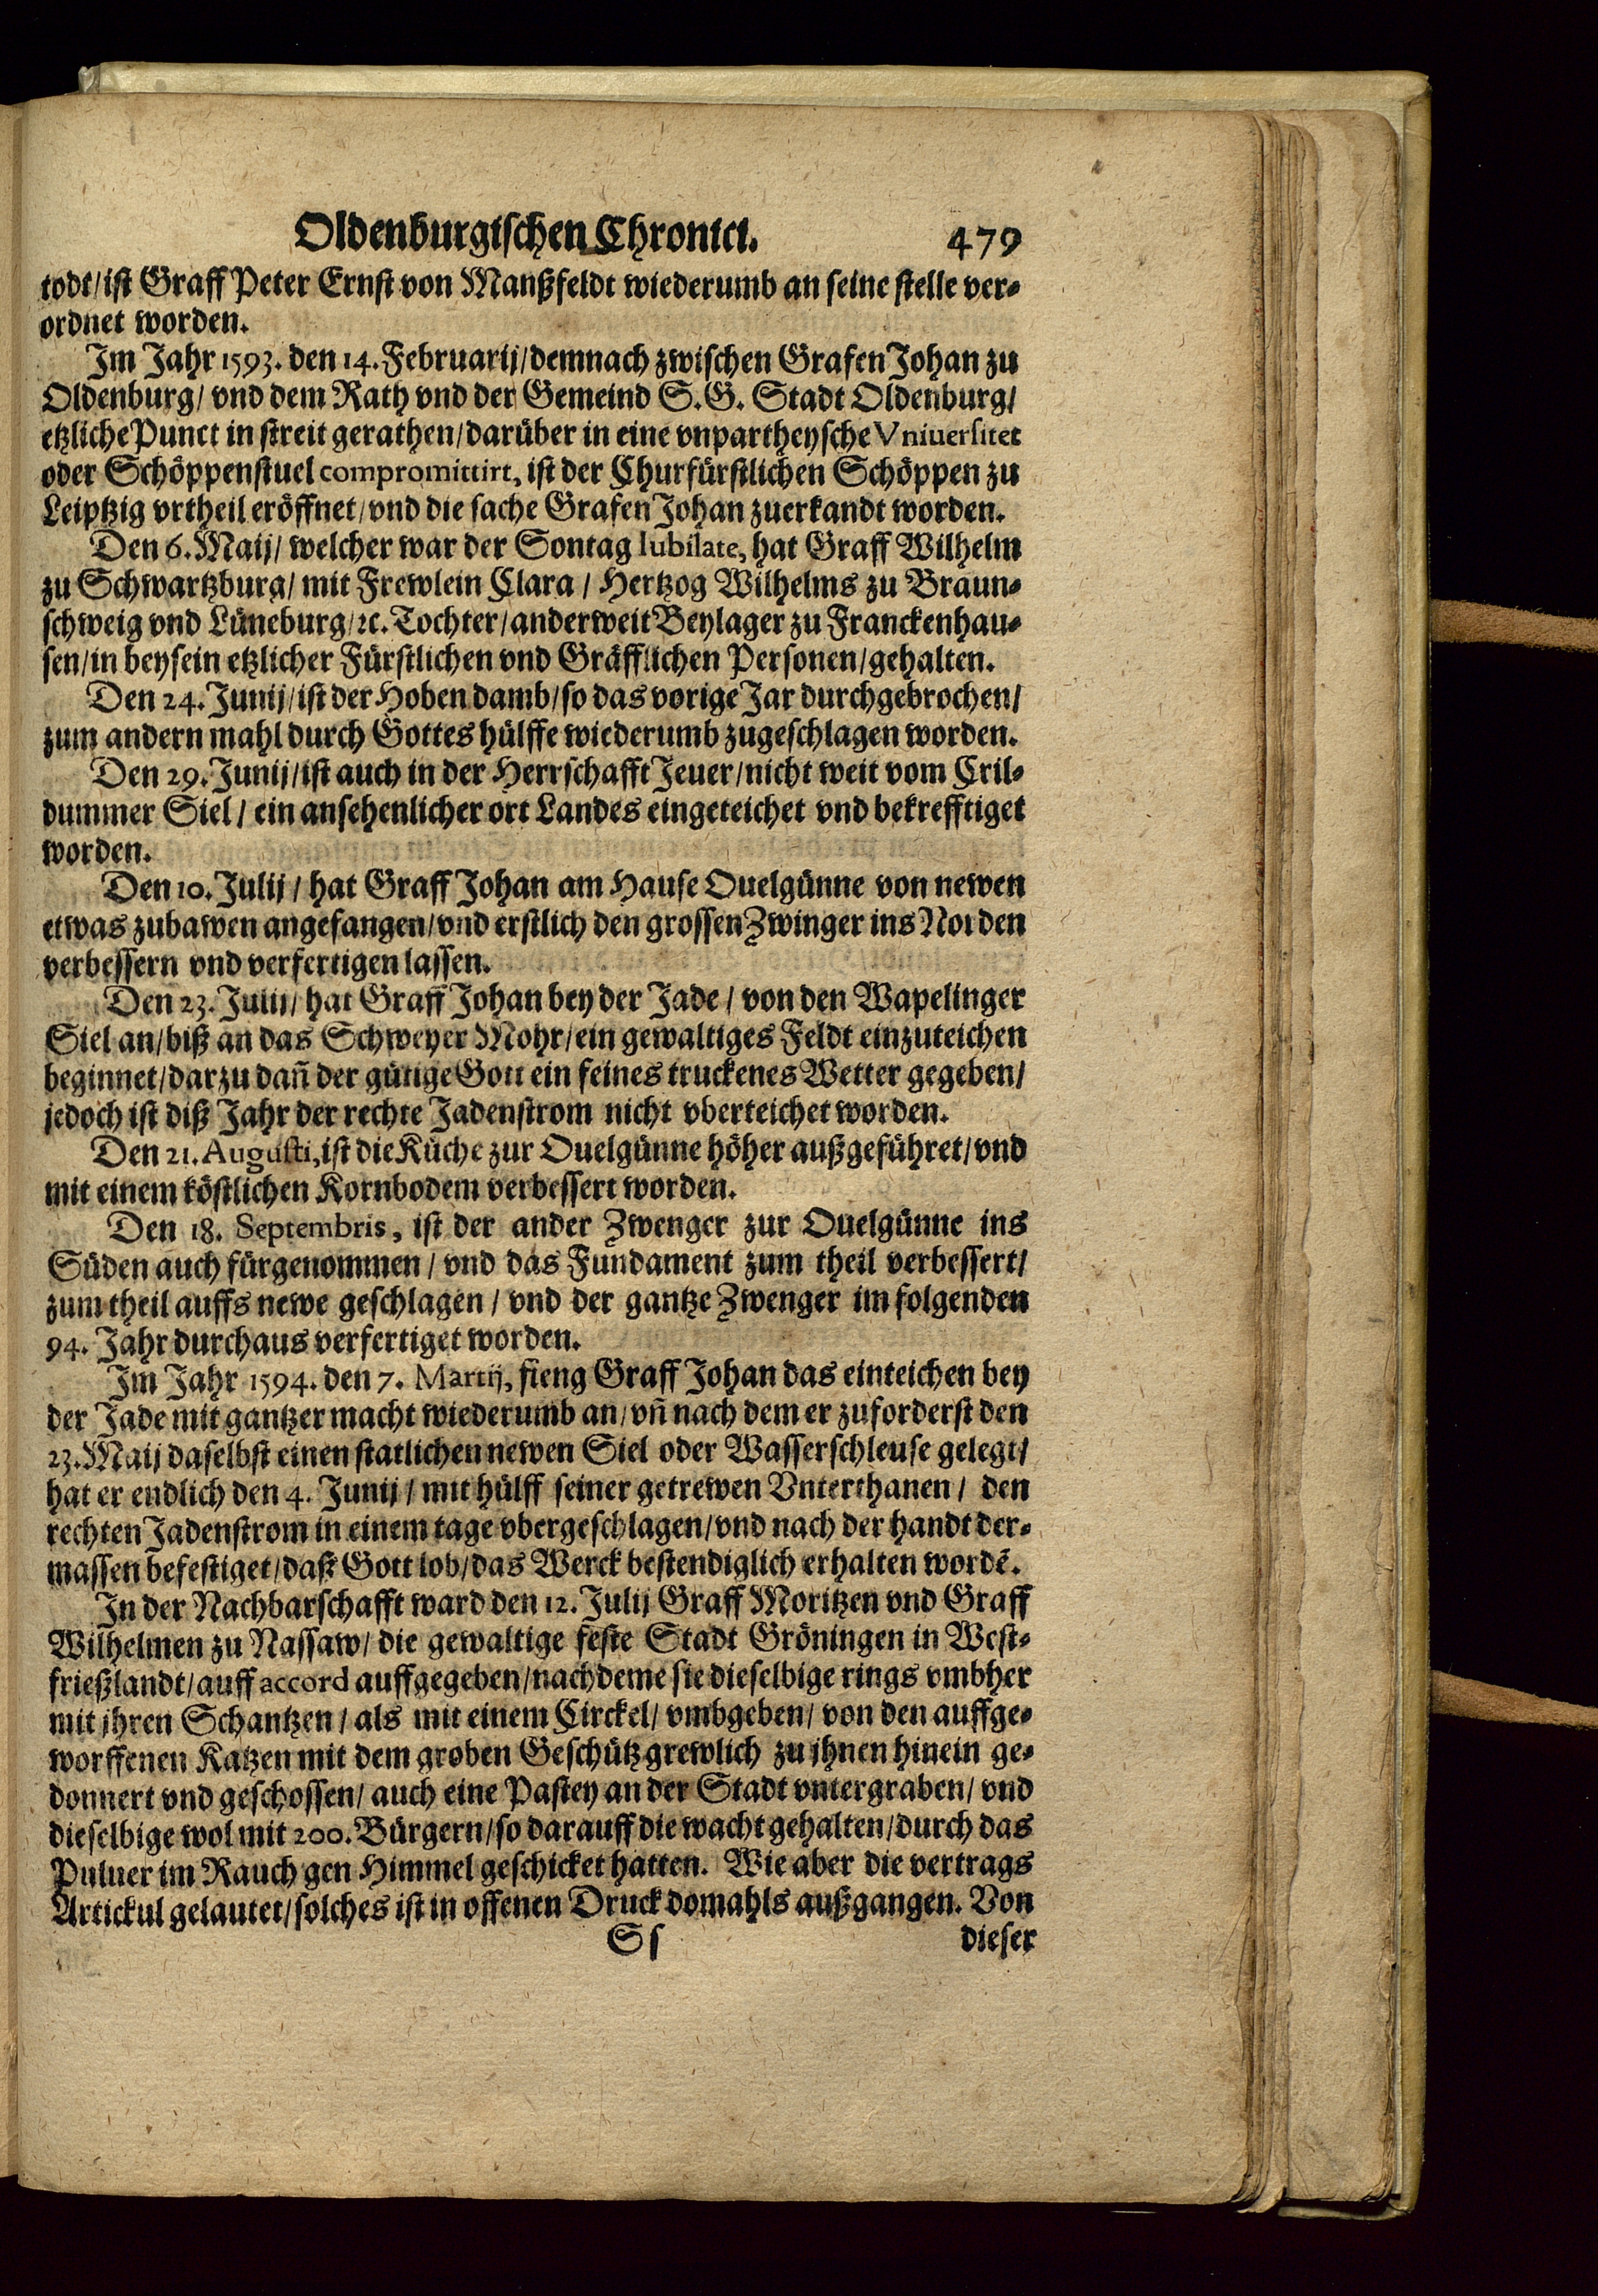 Oldenburgischen Chronici. 479
todt/ ist Graff Peter Ernst von Manßfeldt wiederumb an seine stelle ver-
ordnet worden.
Im Jahr 1593. den 14. Februarij/ demnach zwischen Grafen Johan zu
Oldenburg/ vnd dem Rath vnd der Gemeind S. G. Stadt Oldenburg/
etzliche Punct in streit gerathen/ darüber in eine vnpartheysche Vniuersitet
oder Schöppenstuel compromittirt, ist der Churfürstlichen Schöppen zu
Leiptzig vrtheil eröffnet/ vnd die sache Grafen Johan zuerkandt worden.
Den 6. Maij/ welcher war der Sontag Iubilate, hat Graff Wilhelm
zu Schwartzburg/ mit Frewlein Clara / Hertzog Wilhelms zu Braun-
schweig vnd Lüneburg/ ꝛc. Tochter/ anderweit Beylager zu Franckenhau-
sen/ in beysein etzlicher Fürstlichen vnd Gräfflichen Personen/ gehalten.
Den 24. Junij/ ist der Hoben damb/ so das vorige Jar durchgebrochen/
zum andern mahl durch Gottes hülffe wiederumb zugeschlagen worden.
Den 29. Junij/ ist auch in der Herrschafft Jeuer/ nicht weit vom Cril-
dummer Siel / ein ansehenlicher ort Landes eingeteichet vnd bekrefftiget
worden.
Den 10. Julij / hat Graff Johan am Hause Ouelgünne von newen
etwas zubawen angefangen/ vnd erstlich den grossen Zwinger ins Norden
verbessern vnd verfertigen lassen.
Den 23. Julij/ hat Graff Johan bey der Jade / von den Wapelinger
Siel an/ biß an das Schweyer Mohr/ ein gewaltiges Feldt einzuteichen
beginnet/ darzu dañ der gütige Gott ein feines truckenes Wetter gegeben/
jedoch ist diß Jahr der rechte Jadenstrom nicht vberteichet worden.
Den 21. Augusti, ist die Küche zur Ouelgünne höher außgeführet/ vnd
mit einem köstlichen Kornbodem verbessert worden.
Den 18. Septembris, ist der ander Zwenger zur Ouelgünne ins
Süden auch fürgenommen / vnd das Fundament zum theil verbessert/
zum theil auffs newe geschlagen / vnd der gantze Zwenger im folgenden
94. Jahr durchaus verfertiget worden.
Im Jahr 1594. den 7. Martij, fieng Graff Johan das einteichen bey
der Jade mit gantzer macht wiederumb an/ vñ nach dem er zuforderst den
23. Maij daselbst einen statlichen newen Siel oder Wasserschleuse gelegt/
hat er endlich den 4. Junij / mit hülff seiner getrewen Vnterthanen / den
rechten Jadenstrom in einem tage vbergeschlagen/ vnd nach der handt der-
massen befestiget/ daß Gott lob/ das Werck bestendiglich erhalten wordẽ.
In der Nachbarschafft ward den 12. Julij Graff Moritzen vnd Graff
Wilhelmen zu Nassaw/ die gewaltige feste Stadt Gröningen in West-
frießlandt/ auff accord auffgegeben/ nach deme sie dieselbige rings vmbher
mit jhren Schantzen / als mit einem Circkel/ vmbgeben/ von den auffge-
worffenen Katzen mit dem groben Geschütz grewlich zu jhnen hinein ge-
donnert vnd geschossen/ auch eine Pastey an der Stadt vntergraben/ vnd
dieselbige wol mit 200. Bürgern/ so darauff die wacht gehalten/ durch das
Puluer im Rauch gen Himmel geschicket hatten. Wie aber die vertrags
Artickul gelautet/ solches ist in offenen Druck domahls außgangen. Von
Ss dieser